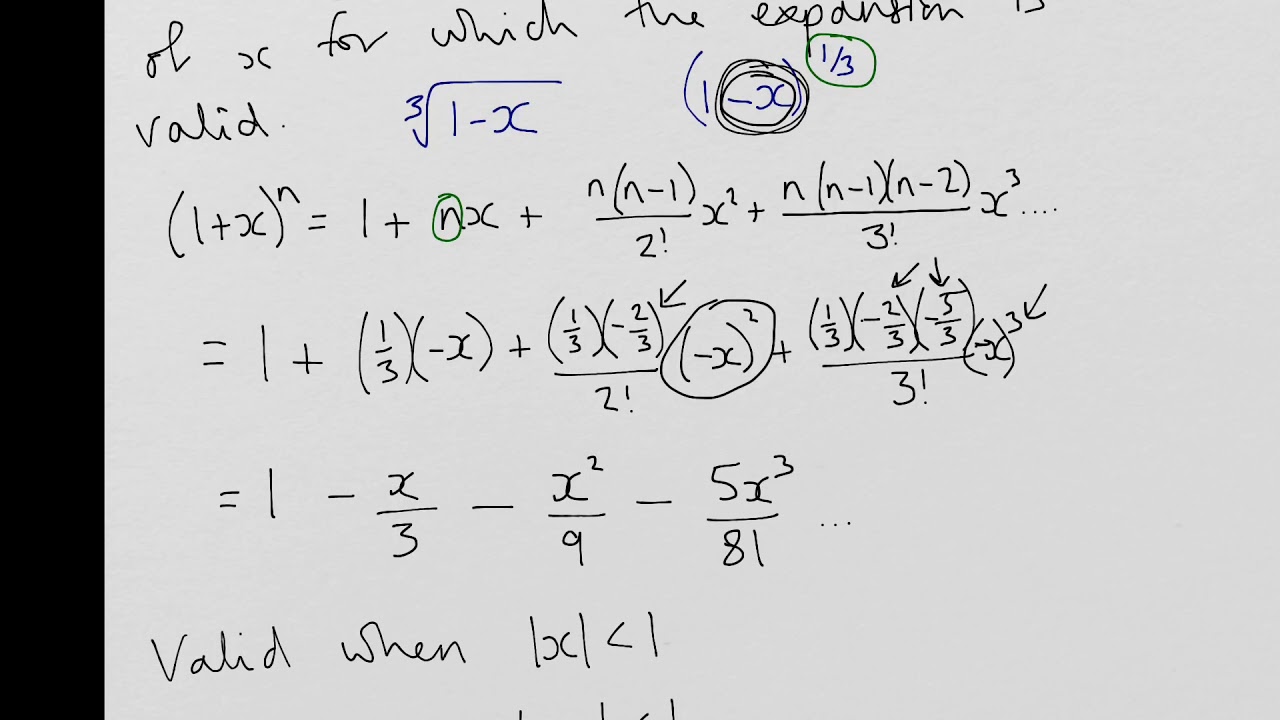 of x for which the expansion is
valid. ∛(1-x) (1-x)^1/3
(1+x)^n = 1 + nx + n(n-1)/2! x² + n(n-1)(n-2)/3! x³ ....
= 1 + (1/3)(-x) + (1/3)(-2/3)/2! (-x)² + (1/3)(-2/3)(-5/3)/3! (-x)³
= 1 - x/3 - x²/9 - 5x³/81 ...
Valid when |x| < 1